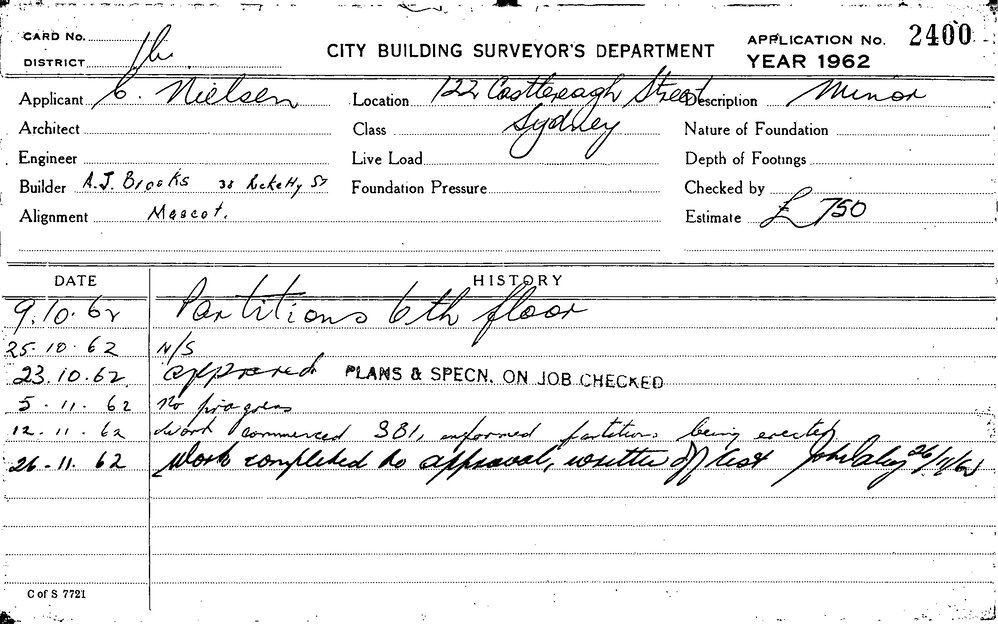 CARD No.
DISTRICT
CITY BUILDING SURVEYOR'S DEPARTMENT
APPLICATION No. 2400
YEAR 1962
Applicant C. Nielsen
Location 122 Castlereagh Street
Sydney
Description Minor
Architect
Class
Nature of Foundation
Engineer
Live Load
Depth of Footings
Builder A.J. Brooks 38 St
Mascot.
Foundation Pressure
Checked by
Alignment
Estimate £ 750
DATE HISTORY
9.10.62 Partitions 6th floor
25.10.62 N/S
23.10.62 approved PLANS & SPECN. ON JOB CHECKED
5.11.62 No progress
12.11.62 Work commenced SBI, informed partitions being erected
26.11.62 Work completed to approval, written off list 26/11/62
C of S 7721